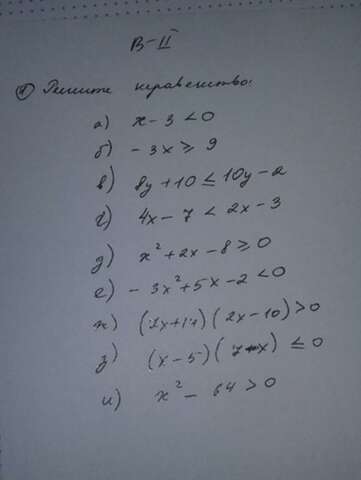 В-II
① Решите неравенство:
а) x - 3 < 0
б) - 3x ≥ 9
в) 8y + 10 ≤ 10y - 2
г) 4x - 7 < 2x - 3
д) x² + 2x - 8 ≥ 0
е) - 3x² + 5x - 2 < 0
ж) (2x - 10) > 0
з) (x - 5) ≤ 0
и) x² - 64 > 0